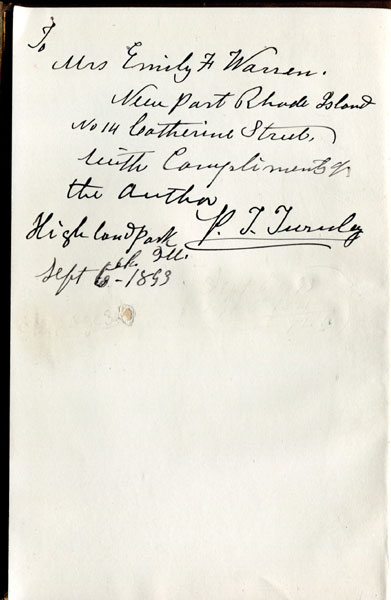 To
Mrs Emily F Warren.
New Port Rhode Island
No 14 Catherine Street,
with Compliments of
the author
Highland Park P. T. Turnley
Ills.
Sept 6th - 1893